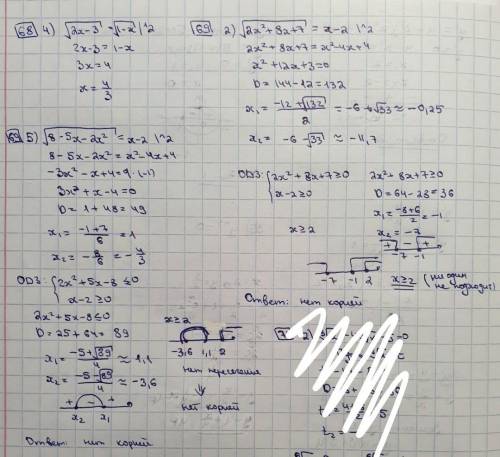 68 4) √(2x-3) = √(1-x) |^2
2x-3 = 1-x
3x = 4
x = 4/3
69 2) √(2x²+8x+7) = x-2 |^2
2x²+8x+7 = x²-4x+4
x²+12x+3=0
D = 144-12 = 132
x₁ = (-12+√132)/2 = -6+√33 ≈ -0,25
x₂ = -6-√33 ≈ -11,7
ОДЗ: { 2x²+8x+7≥0
x-2≥0
x≥2
2x²+8x+7≥0
D=64-28=36
x₁ = (-8+6)/2 = -1
x₂ = -7
+ - +
-7 -1
-7 -1 2
x≥2 (ни один не подходит)
Ответ: нет корней
69 5) √(8-5x-2x²) = x-2 |^2
8-5x-2x² = x²-4x+4
-3x²-x+4=0 |·(-1)
3x²+x-4=0
D = 1+48=49
x₁ = (-1+7)/6 = 1
x₂ = -8/6 = -4/3
ОДЗ: { 2x²+5x-8≤0
x-2≥0
2x²+5x-8≤0
D=25+64=89
x₁ = (-5+√89)/4 ≈ 1,1
x₂ = (-5-√89)/4 ≈ -3,6
+ - +
x₂ x₁
x≥2
-3,6 1,1 2
нет пересечения
⇓
нет корней
Ответ: нет корней